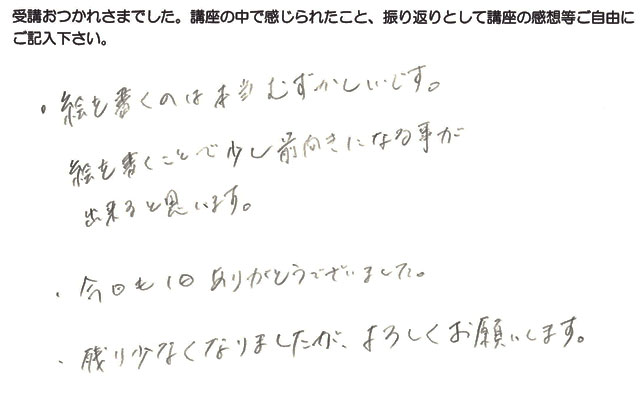 受講おつかれさまでした。講座の中で感じられたこと、振り返りとして講座の感想等ご自由に
ご記入下さい。
・絵を書くのは本当むずかしいです。
絵を書くことで少し前向きになる事が
出来ると思います。
・今回も1日ありがとうございました。
・残り少なくなりましたが、よろしくお願いします。